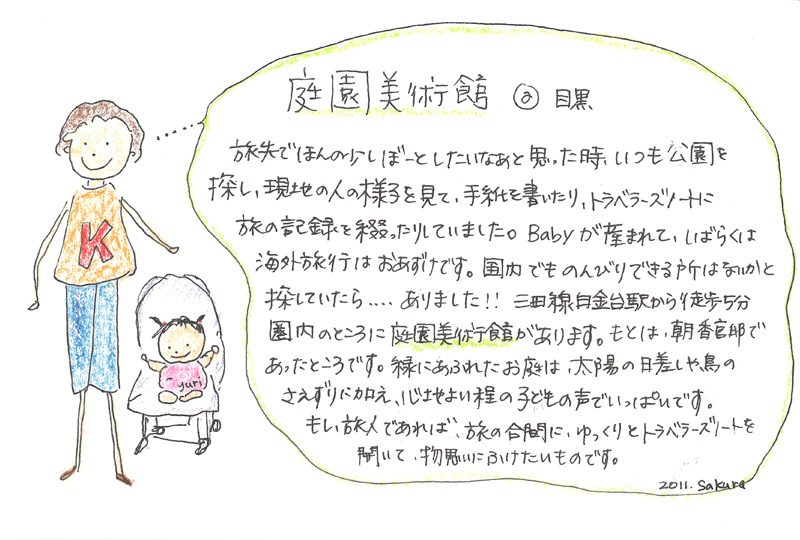 庭園美術館 @ 目黒
旅先でほんの少しぼーっとしたいなあと思った時、いつも公園を
探し、現地の人の様子を見て、手紙を書いたり、トラベラーズノートに
旅の記録を綴ったりしていました。Babyが産まれて、しばらくは
海外旅行はおあずけです。国内でものんびりできる所はないかと
探していたら....ありました!! 三田線白金台駅から徒歩5分
圏内のところに庭園美術館があります。もとは、朝香宮邸で
あったところです。緑にあふれたお庭は、太陽の日差しや鳥の
さえずりに加え、心地よい程の子どもの声でいっぱいです。
もし旅人であれば、旅の合間に、ゆっくりとトラベラーズノートを
開いて、物思いにふけたいものです。
2011. Sakura
K
yuri